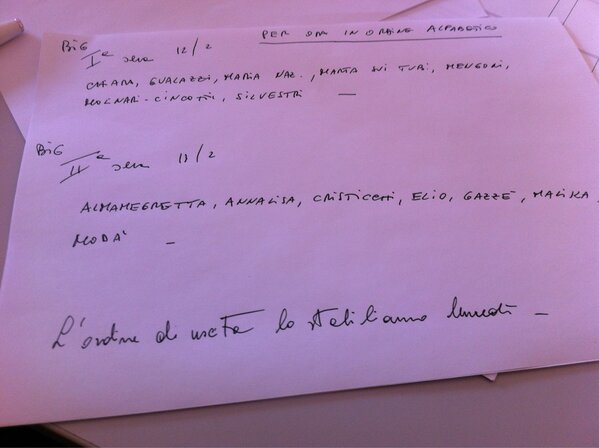 PER ORA IN ORDINE ALFABETICO
BIG Iª sera 12/2
CHIARA, GUALAZZI, MARIA NAZ., MARTA SUI TUBI, MENGONI,
MOLINARI-CINCOTTI, SILVESTRI —
BIG IIª sera 13/2
ALMAMEGRETTA, ANNALISA, CRISTICCHI, ELIO, GAZZÈ, MALIKA,
MODÀ —
L'ordine di uscita lo stabiliamo lunedì —